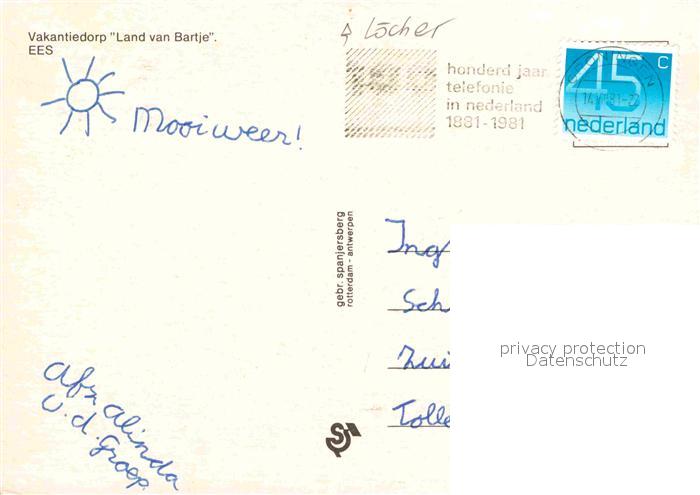 Vakantiedorp "Land van Bartje".
EES
Löcher
honderd jaar
telefonie
in nederland
1881-1981
45 c
nederland
Mooi weer!
gebr. spanjersberg
rotterdam - antwerpen
Ing
Sch
Zui
Tolle
privacy protection
Datenschutz
Afz Alinda
v.d. Groep.